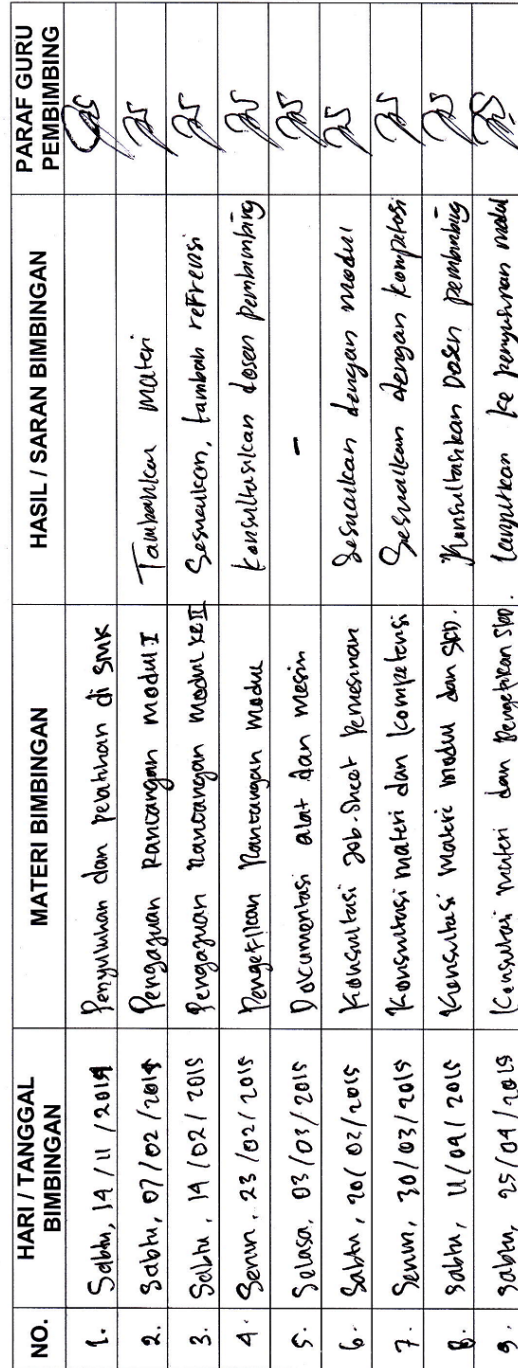 NO. HARI / TANGGAL BIMBINGAN MATERI BIMBINGAN HASIL / SARAN BIMBINGAN PARAF GURU PEMBIMBING
1. Sabtu, 14/11/2014 Penyuluhan dan pelatihan di SMK
2. Sabtu, 07/02/2014 Pengajuan Rancangan modul I Tambahkan materi
3. Sabtu, 14/02/2015 Pengajuan Rancangan modul ke II Sesuaikan, tambah refrensi
4. Senin, 23/02/2015 Pengetikan Rancangan modul Konsultasikan dosen pembimbing
5. Selasa, 03/03/2015 Documentasi alat dan mesin -
6. Sabtu, 20/02/2015 Konsultasi Job-Sheet Pemesinan Sesuaikan dengan modul
7. Senin, 30/03/2015 Konsultasi materi dan kompetensi Sesuaikan dengan kompetensi
8. Sabtu, 11/04/2015 Konsultasi Materi modul dan SKD. Konsultasikan Dosen pembimbing
9. Sabtu, 25/04/2015 Konsultasi materi dan Pengetikan SKD. Lanjutkan ke penyusunan modul